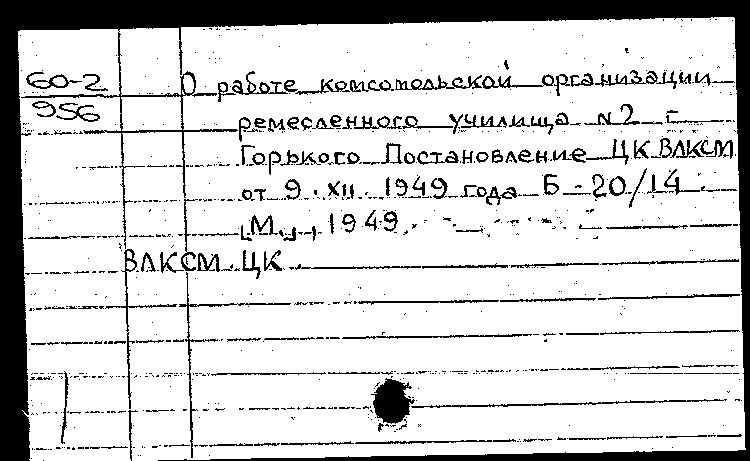 60-2
956
О работе комсомольской организации
ремесленного училища N2 г.
Горького Постановление ЦК ВЛКСМ
от 9.XII.1949 года Б-20/14.
[М.], 1949.
ВЛКСМ. ЦК.